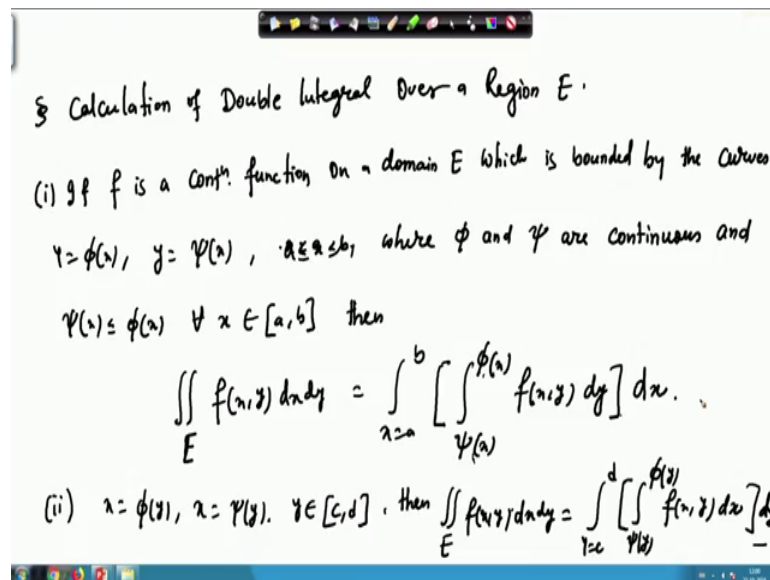 § Calculation of Double Integral Over a Region E.
(i) If f is a contn. function on a domain E which is bounded by the curves
y = ϕ(x), y = ψ(x), a ≤ x ≤ b, where ϕ and ψ are continuous and
ψ(x) ≤ ϕ(x) ∀ x ∈ [a, b] then
∬_E f(x, y) dx dy = ∫_{x=a}^{b} [ ∫_{ψ(x)}^{ϕ(x)} f(x, y) dy ] dx.
(ii) x = ϕ(y), x = ψ(y). y ∈ [c, d], then ∬_E f(x, y) dx dy = ∫_{y=c}^{d} [ ∫_{ψ(y)}^{ϕ(y)} f(x, y) dx ] d